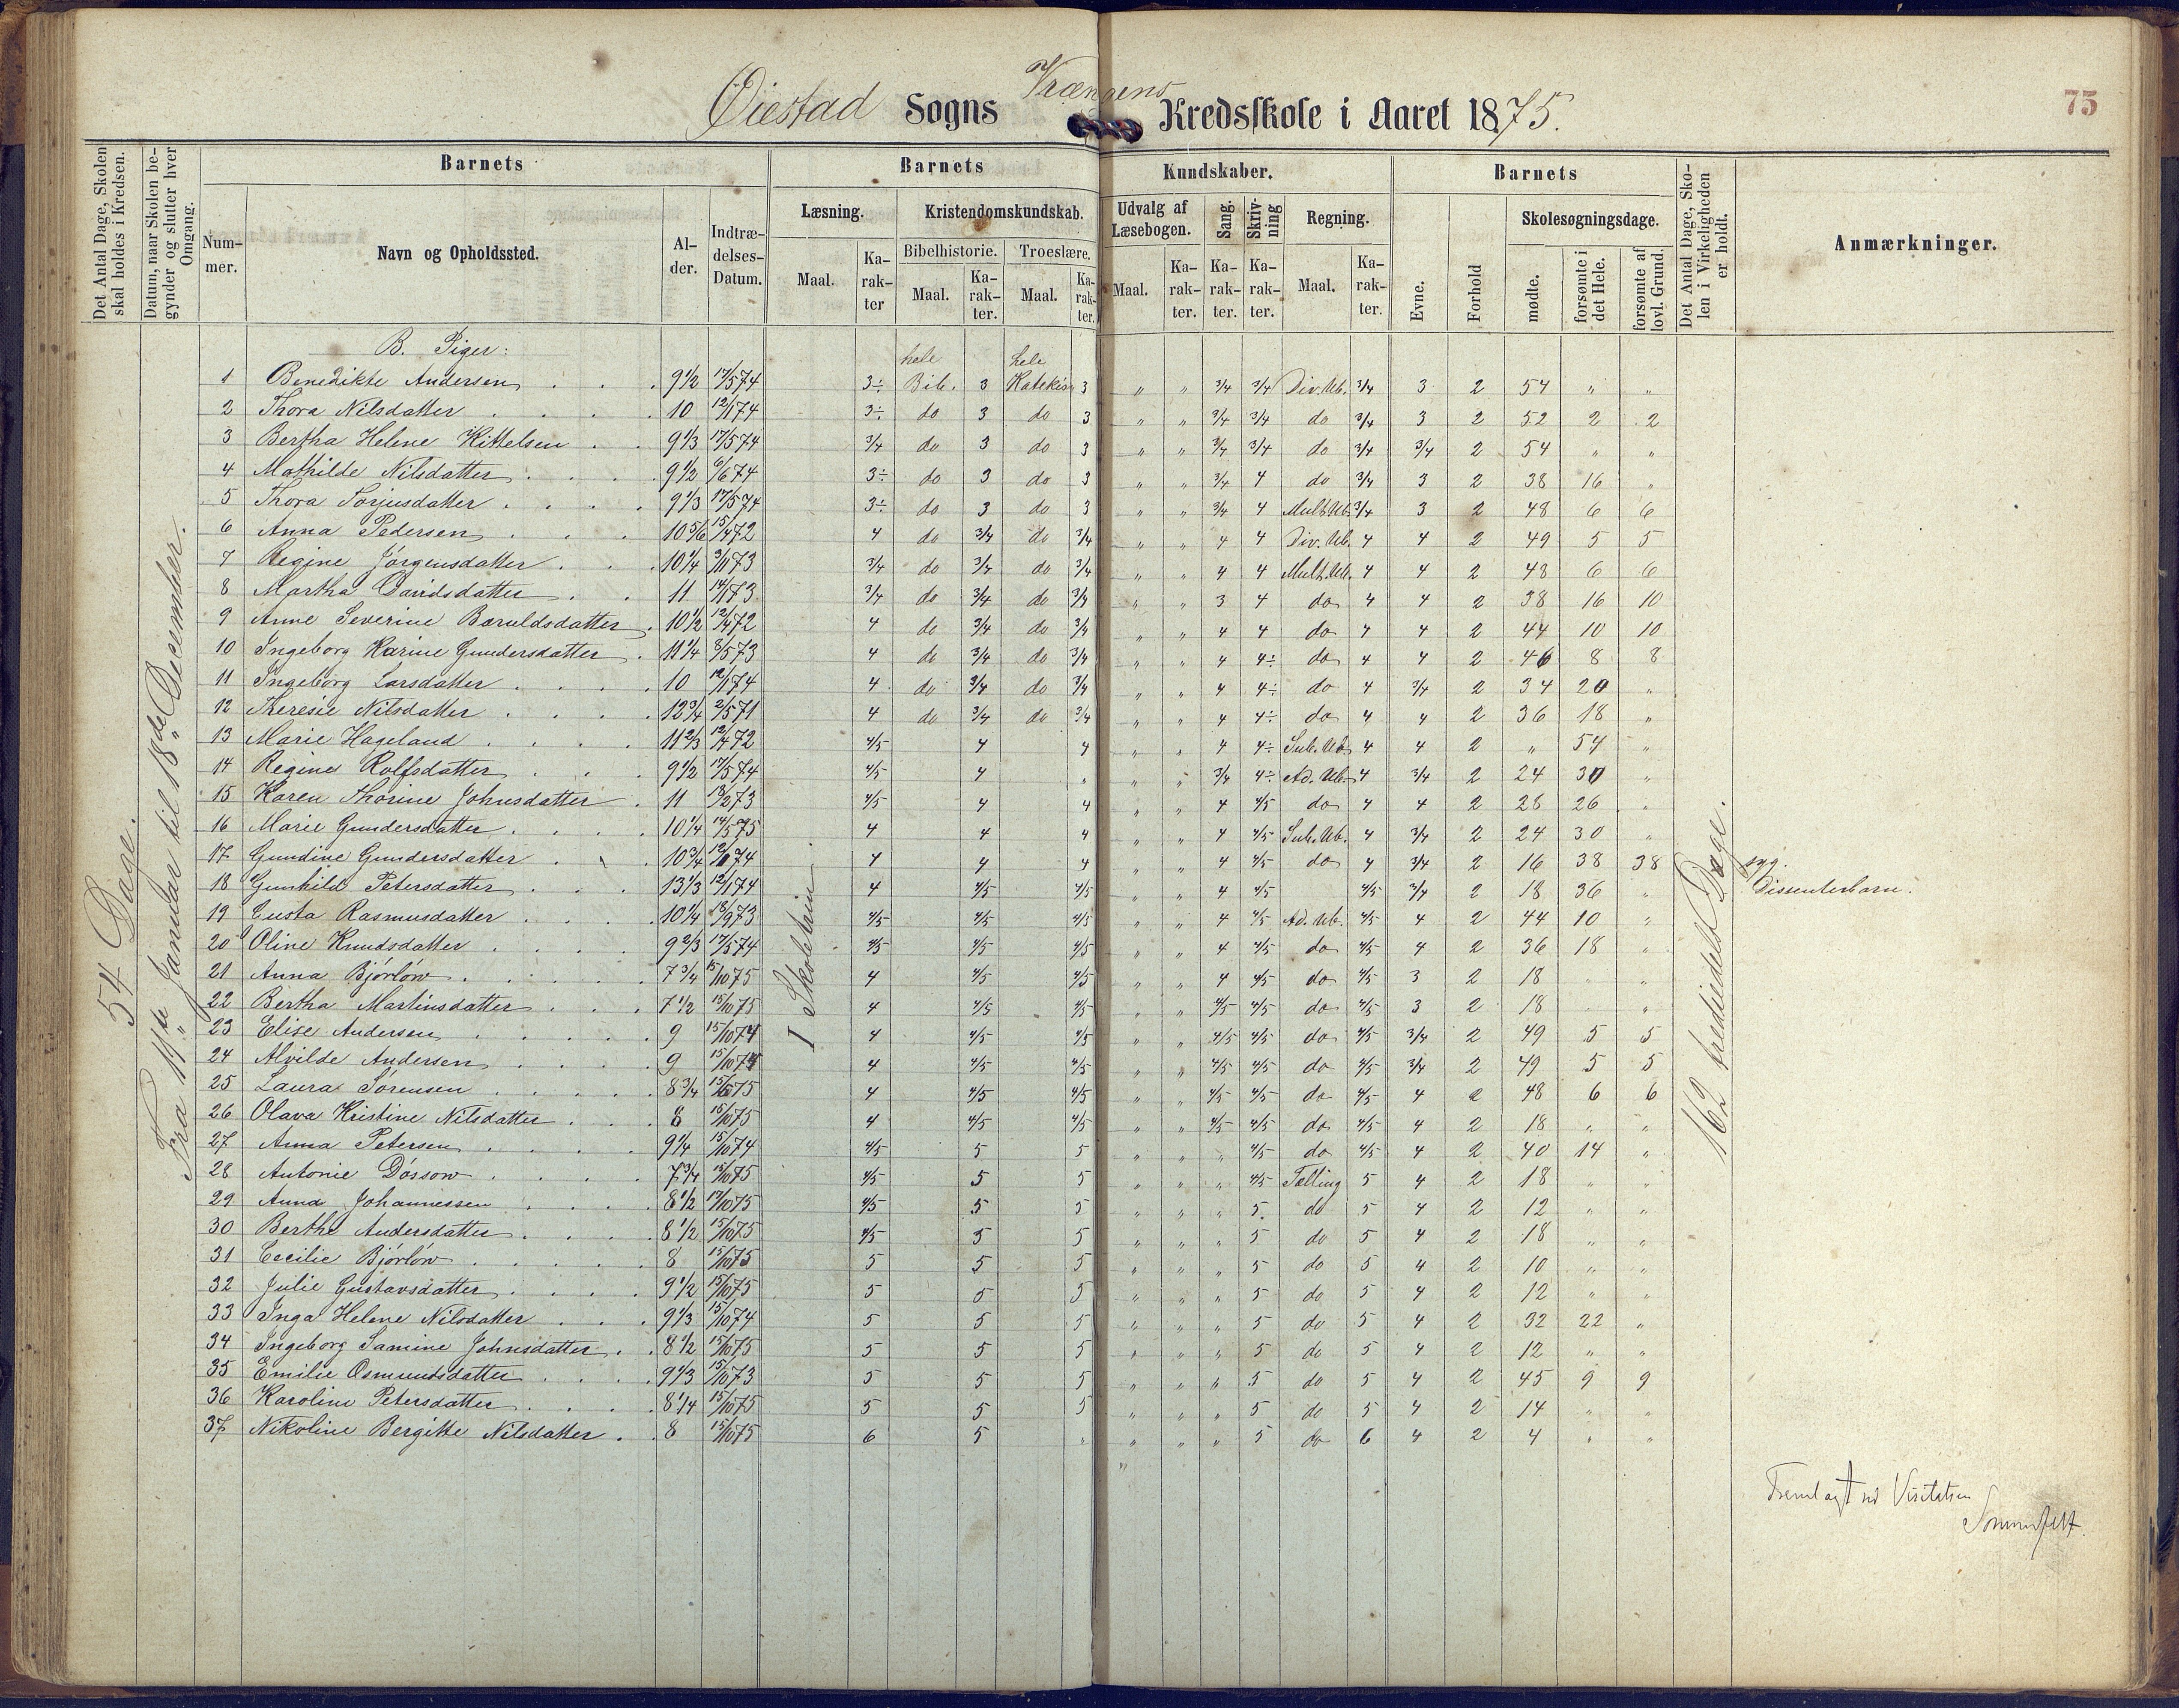 Øiestad Sogns Vrængens Kredsskole i Aaret 1875.
75
Det Antal Dage, Skolen skal holdes i Kredsen.
Datum, naar Skolen begynder og slutter hver Omgang.
Barnets
Nummer.
Navn og Opholdssted.
Alder.
Indtrædelses-Datum.
Barnets Kundskaber.
Læsning.
Maal.
Karakter
Kristendomskundskab.
Bibelhistorie.
Maal.
Karakter.
Troeslære.
Maal.
Karakter.
Udvalg af Læsebogen.
Maal.
Karakter.
Sang.
Karakter.
Skrivning
Karakter.
Regning.
Maal.
Karakter.
Barnets
Evne.
Forhold
Skolesøgningsdage.
mødte.
forsømte i det Hele.
forsømte af lovl. Grund.
Det Antal Dage, Skolen i Virkeligheden er holdt.
Anmærkninger.
54 Dage.
Fra 11te Januar til 18de December.
I Skoletrin
162 trediedels Dage.
B. Piger:
1 Benedikte Andersen 9 1/2 17/5 74 3÷ hele Bib. 3 hele Katekism 3 " " 3/4 3/4 Div. Ub. 3/4 3 2 54 " "
2 Thora Nilsdatter 10 12/1 74 3÷ do 3 do 3 " " 3/4 3/4 do 3/4 3 2 52 2 2
3 Bertha Helene Kittelsen 9 1/3 17/5 74 3/4 do 3 do 3 " " 3/4 3/4 do 3/4 3/4 2 54 " "
4 Mathilde Nilsdatter 9 1/2 6/6 74 3÷ do 3 do 3 " " 3/4 4 do 3/4 3 2 38 16 "
5 Thora Torjusdatter 9 1/3 17/5 74 3÷ do 3 do 3 " " 3/4 4 Mult. Ub. 3/4 3 2 48 6 6
6 Anna Pedersen 10 5/6 15/4 72 4 do 3/4 do 3/4 " " 4 4 Div. Ub. 4 4 2 49 5 5
7 Regine Jörgensdatter 10 1/4 3/11 73 3/4 do 3/4 do 3/4 " " 4 4 Mult. Ub. 4 4 2 48 6 6
8 Martha Davidsdatter 11 14/1 73 3/4 do 3/4 do 3/4 " " 3 4 do 4 4 2 38 16 10
9 Anne Severine Baruldsdatter 10 1/2 12/4 72 4 do 3/4 do 3/4 " " 4 4 do 4 4 2 44 10 10
10 Ingeborg Karine Gundersdatter 11 1/4 8/5 73 4 do 3/4 do 3/4 " " 4 4÷ do 4 4 2 46 8 8
11 Ingeborg Larsdatter 10 12/1 74 4 do 3/4 do 3/4 " " 4 4÷ do 4 3/4 2 34 20 "
12 Theresie Nilsdatter 12 3/4 2/5 71 4 do 3/4 do 3/4 " " 4 4÷ do 4 4 2 36 18 "
13 Marie Hageland 11 2/3 12/4 72 4/5 4 4 " " 4 4÷ Sub. Ub. 4 4 2 " 54 "
14 Regine Rolfsdatter 9 1/2 17/5 74 4/5 4 " " " 3/4 4÷ Ad. Ub. 4 3/4 2 24 30 "
15 Karen Thorine Johnsdatter 11 18/2 73 4/5 4 4 " " 4 4/5 do 4 4 2 28 26 "
16 Marie Gundersdatter 10 1/4 14/5 75 4 4 4 " " 4 4/5 Sub. Ub. 4 3/4 2 24 30 "
17 Gundine Gundersdatter 10 3/4 74 4 4 4 " " 4 4/5 do 4 3/4 2 16 38 38 syg.
18 Gunhild Petersdatter 13 1/3 12/1 74 4 4/5 4/5 " " 4 4/5 4/5 3/4 2 18 36 " Dissenterbarn.
19 Gusta Rasmusdatter 10 1/4 18/9 73 4/5 4/5 4/5 " " 4 4/5 Ad. Ub. 4/5 4 2 44 10 "
20 Oline Knudsdatter 9 2/3 17/5 74 4/5 4/5 4/5 " " 4 4/5 do 4/5 4 2 36 18 "
21 Anna Bjórlów 7 3/4 15/10 75 4 4/5 4/5 " " 4 4/5 do 4/5 3 2 18 " "
22 Bertha Martinsdatter 7 1/2 15/10 75 4 4/5 4/5 " " 4/5 4/5 do 4/5 3 2 18 " "
23 Elise Andersen 9 15/10 74 4 4/5 4/5 " " 4/5 4/5 do 4/5 3/4 2 49 5 5
24 Alvilde Andersen 9 15/10 74 4 4/5 4/5 " " 4/5 4/5 do 4/5 3/4 2 49 5 5
25 Laura Sörensen 8 3/4 75 4 4/5 4/5 " " 4/5 4/5 do 4/5 4 2 48 6 6
26 Olava Kristine Nilsdatter 8 15/10 75 4 4/5 4/5 " " 4/5 4/5 do 4/5 4 2 18 " "
27 Anna Petersen 9 1/4 15/10 74 4/5 5 5 " " " 4/5 do 4/5 4 2 40 14 "
28 Antonie Dóssow 7 3/4 15/10 75 4/5 5 5 " " " 4/5 Tælling 5 4 2 18 " "
29 Anna Johannessen 8 1/2 19/10 75 4/5 5 5 " " " 5 do 5 4 2 12 " "
30 Berthe Andersdatter 8 1/2 15/10 75 4/5 5 5 " " " 5 do 5 4 2 18 " "
31 Cecilie Bjórlów 8 15/10 75 5 5 5 " " " 5 do 5 4 2 10 " "
32 Julie Gustavsdatter 9 1/2 15/10 75 5 5 5 " " " 5 do 5 4 2 12 " "
33 Inga Helene Nilsdatter 9 1/3 15/10 74 5 5 5 " " " 5 do 5 4 2 32 22 "
34 Ingeborg Samine Johnsdatter 8 1/2 15/10 75 5 5 5 " " " 5 do 5 4 2 12 " "
35 Emilie Osmundsdatter 9 1/3 15/10 73 5 5 5 " " " 5 do 5 4 2 45 9 9
36 Karoline Petersdatter 8 1/4 15/10 75 5 5 5 " " " 5 do 5 4 2 14 " "
37 Nikoline Bergitte Nilsdatter 8 15/10 75 6 5 " " " " 5 do 6 4 2 4 " "
Fremlagt ved Visitatsen
Sommerfelt.